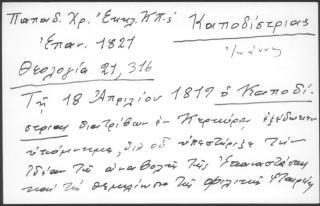 Παπαδ. Χρ. Ἐκκλ. ΚΠ.ς Καποδίστριας
Ἐπαν. 1821 Ἰωάννης
Θεολογία 21, 316
Τῇ 18 Ἀπριλίου 1819 ὁ Καποδί-
στριας διατρίβων ἐν Κερκύρᾳ, ἐξέδωκεν
ὑπόμνημα, δι' οὗ ὑπεστήριξε τὴν
ἰδέαν τῆς ἀναβολῆς τῆς Ἐπαναστάσεως
καὶ τῆς θεμελιώσεως τῆς Φιλικῆς Ἑταιρείας